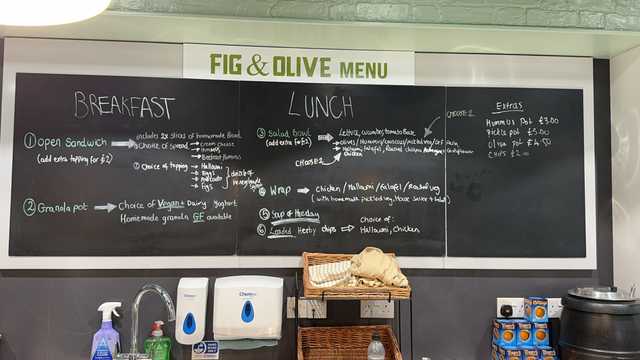 FIG & OLIVE MENU
BREAKFAST
① Open Sandwich
(add extra topping for £2)
includes 2x slices of homemade bread
Choice of spread
Cream cheese
Hummus
① Choice of topping
Halloumi
Eggs
Avocado
Figs
② Granola pot
Choice of Vegan + Dairy Yoghurt
Homemade granola GF available
LUNCH
③ Salad Bowl
(add extra for £2)
Lettuce, cucumber, tomato Base
CHOOSE 2
CHOOSE 2
Chicken
Wrap
Chicken / Halloumi / falafel / Roasted veg
(with homemade pickled veg, House Sauce + Salad)
⑤ Soup of the day
⑥ Loaded Herby chips
Choice of:
Halloumi, Chicken
Extras
Hummus Pot £3.00
Pickle pot £5.00
Olive pot £4.50